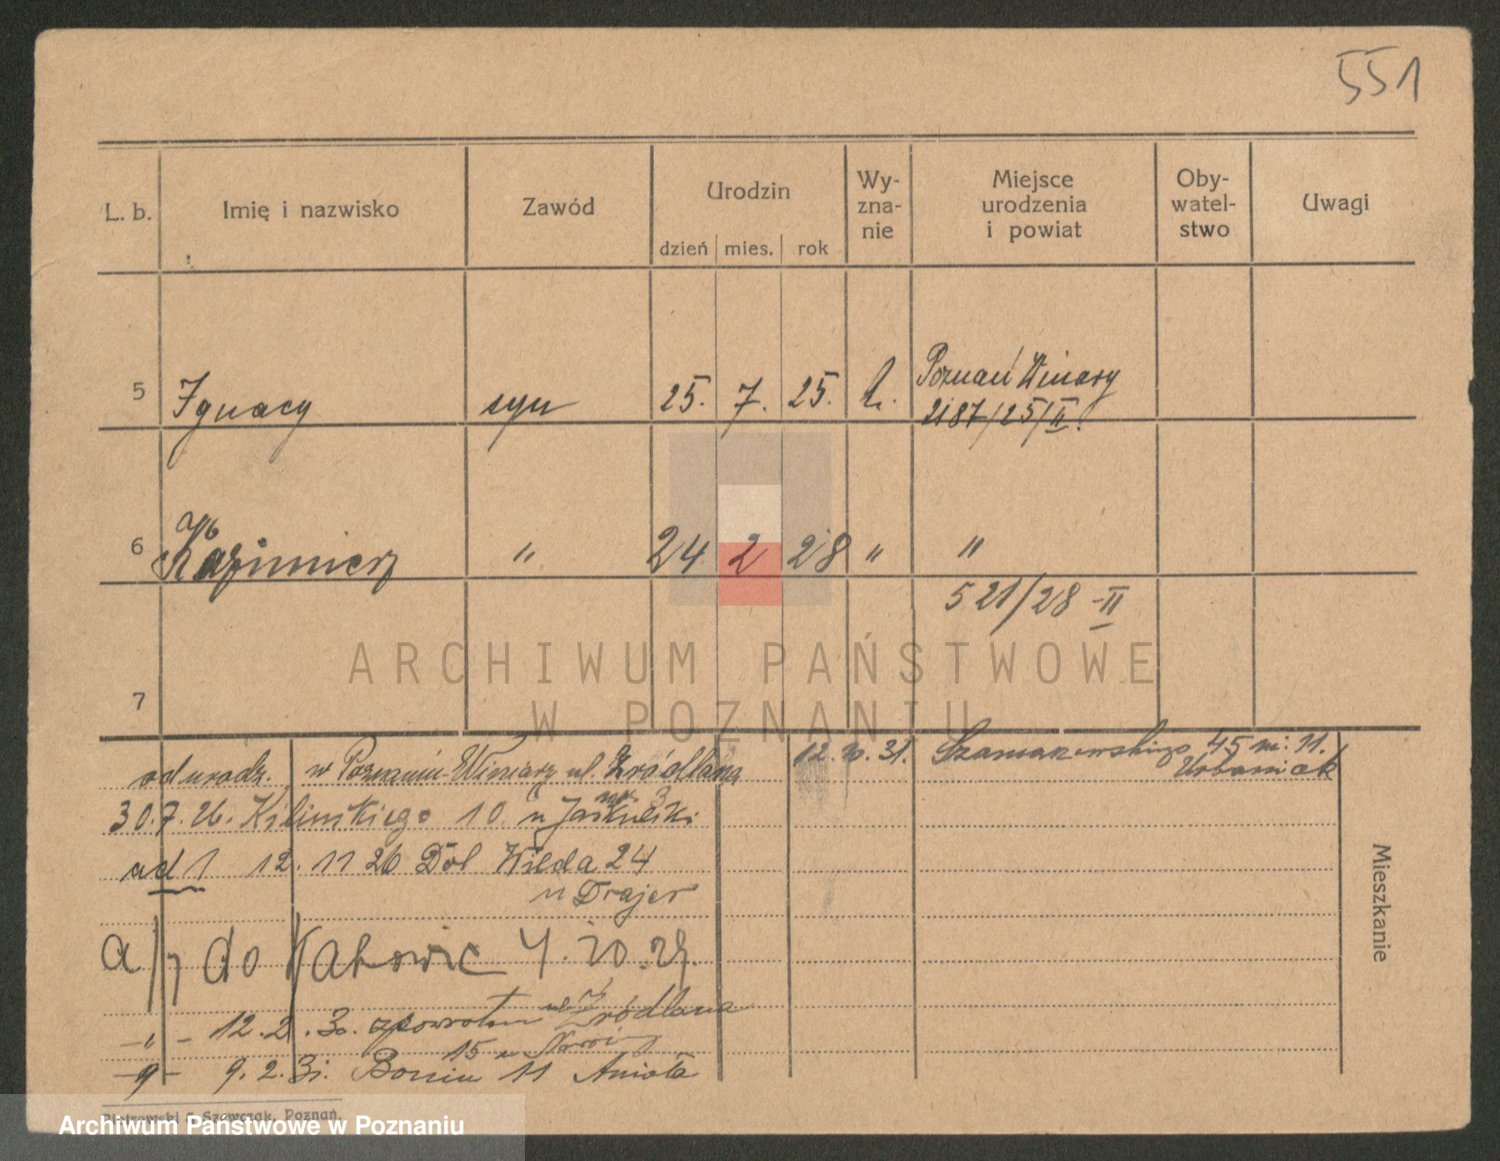 551
L. b.
Imię i nazwisko
Zawód
Urodzin
dzień mies. rok
Wy-
zna-
nie
Miejsce
urodzenia
i powiat
Oby-
watel-
stwo
Uwagi
5 Ignacy syn 25. 7. 25. Poznań Winary
2187/25/II.
6 Kazimierz " 24 2 28 " "
521/28 -II
7
ARCHIWUM PAŃSTWOWE
W POZNANIU
od urodz. w Poznaniu-Winiary ul. Źródlana
30.7.26. Kilinskiego 10 u Jaskulski
ad 1 12. 11 26 Dol Wilda 24
u Drajer
do Katowic 4. 20. 29.
-"- 12.2.30. zpowrotem Źródlana
15 u
9.2.31. Bonin 11 Anioła
12. 10. 31. Szamarzewskiego 45 m. 11.
Urbaniak
Mieszkanie
Piotrowski & Szewczak, Poznań.
Archiwum Państwowe w Poznaniu